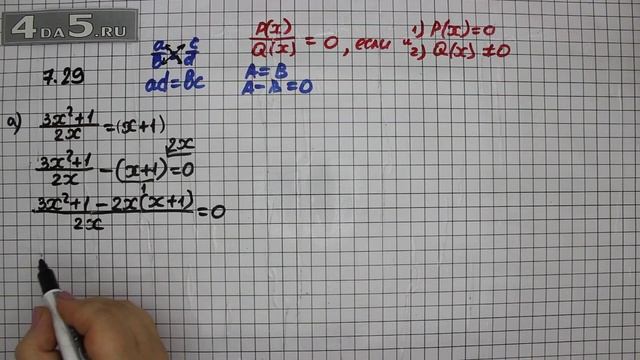 4DA5.RU
7.29
a/b = c/d
ad=bc
P(x)/Q(x) = 0, если 1) P(x)=0 и 2) Q(x)≠0
A=B
A-B=0
а) (3x²+1)/2x = (x+1)
(3x²+1)/2x - (x+1)/1 = 0 2x
(3x²+1-2x(x+1))/2x = 0